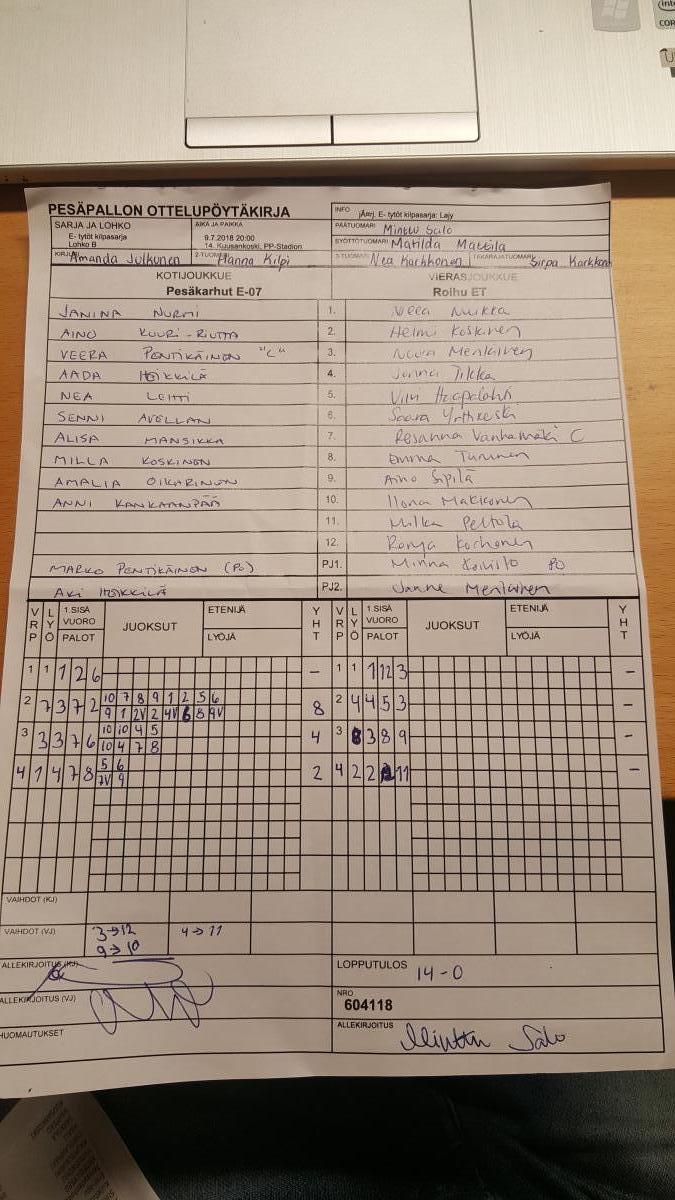 PESÄPALLON OTTELUPÖYTÄKIRJA
SARJA JA LOHKO
E- tytöt kilpasarja
Lohko B
AIKA JA PAIKKA
9.7.2018 20:00
14. Kuusankoski, PP-Stadion
INFO jÄmrj. E- tytöt kilpasarja: Lajy
PÄÄTUOMARI Minttu Salo
SYÖTTÖTUOMARI Matilda Mattila
KIRJURI Amanda Julkunen
2-TUOMARI Hanna Kilpi
3-TUOMARI Nea Karhhonen
TAKARAJATUOMARI Sirpa Karkkonen
KOTIJOUKKUE
Pesäkarhut E-07
VIERASJOUKKUE
Roihu ET
JANINA NURMI 1. Neea Nuikka
AINO KUURI-RIUTTA 2. Helmi Koskinen
VEERA PENTIKÄINEN "C" 3. Noora Menlainen
AADA HEIKKILÄ 4. Jenna Tikka
NEA LEHTI 5. Vilvi Haapalahti
SENNI AVELLAN 6. Saara
ALISA MANSIKKA 7. Rosanna Vanhamäki C
MILLA KOSKINEN 8. Emma Turunen
AMALIA OIKARINEN 9. Aino Sipilä
ANNI KANKAANPÄÄ 10. Ilona Makkonen
11. Milka Peltola
12. Ronja Korhonen
MARKO PENTIKÄINEN (PO) PJ1. Minna Koivisto PO
AKI HEIKKILÄ PJ2. Janne Menlainen
VRP LYÖ 1.SISÄ VUORO PALOT JUOKSUT ETENIJÄ LYÖJÄ YHT VRP LYÖ 1.SISÄ VUORO PALOT JUOKSUT ETENIJÄ LYÖJÄ YHT
1 1 1 2 6 - 1 1 1 12 3 -
2 7 3 7 2 10 7 8 9 1 2 5 6 8 2 4 4 5 3 -
9 1 2V 2 4V 6 8 9V
3 3 3 7 6 10 10 4 5 4 3 8 3 8 9 -
10 4 7 8
4 1 4 7 8 5 6 2 4 2 2 11 -
7V 9
VAIHDOT (KJ)
VAIHDOT (VJ) 3→12 4→11
9→10
ALLEKIRJOITUS (KJ)
LOPPUTULOS 14-0
ALLEKIRJOITUS (VJ)
NRO
604118
HUOMAUTUKSET
ALLEKIRJOITUS Minttu Salo